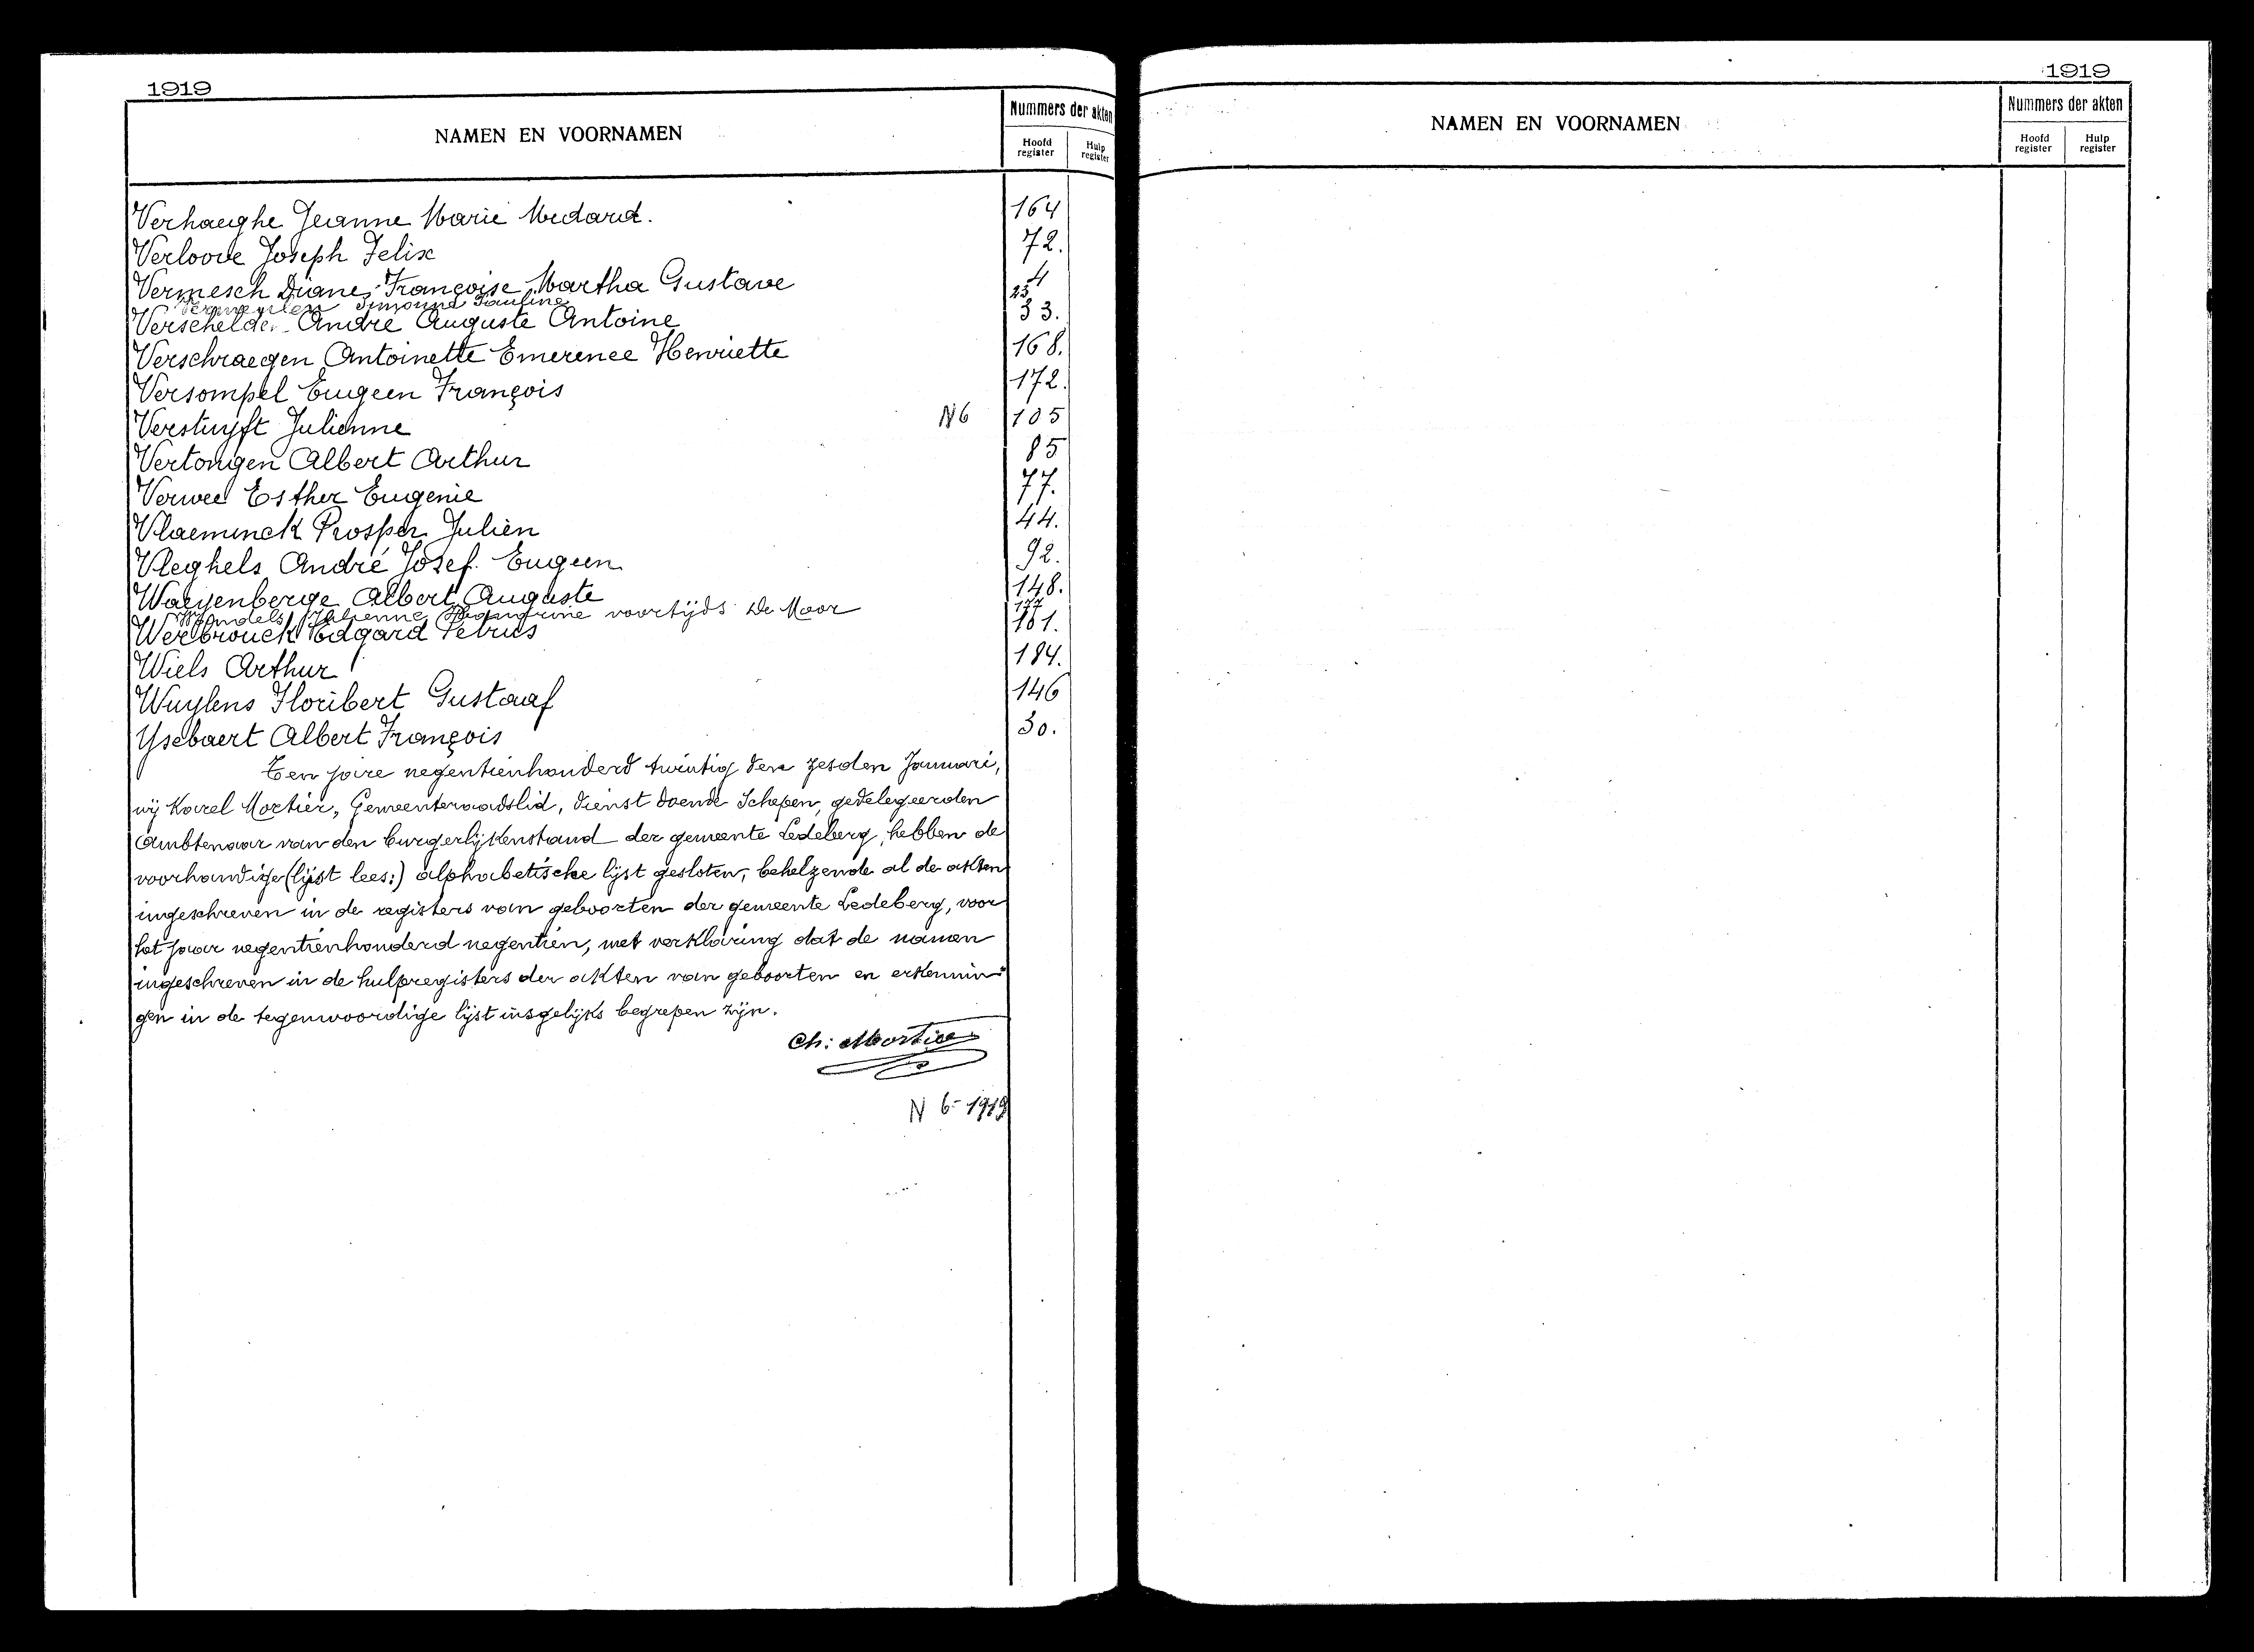 1919
NAMEN EN VOORNAMEN
Nummers der akten
Hoofd register
Hulp register
Verhaeghe Jeanne Marie Medard. 164
Verloove Joseph Felix 72.
Vermesch Diane Françoise Martha Gustave 4
Vermeulen Simonne Pauline 25
Verschelden André Auguste Antoine 33.
Verschraegen Antoinette Emerence Henriette 168.
Versompel Eugeen François 172.
Verstuyft Julienne N6 105
Vertongen Albert Arthur 85
Verwee Esther Eugenie 77.
Vlaeminck Prosper Julien 44.
Vleghels André Josef Eugeen 92.
Waeyenberge Albert Auguste 148.
Julienne voortijds De Moor 177
Werbrouck Edgard Petrus 161.
Wiels Arthur 184.
Wuylens Floribert Gustaaf 146
Ysebaert Albert François 30.
Ten jare negentienhonderd twintig den zesden Januari,
wij Karel Mortier, Gemeenteraadslid, dienst doende Schepen, gedelegeerden
Ambtenaar van den burgerlijkenstand der gemeente Ledeberg, hebben de
voorhandige (lijst lees:) alphabetische lijst gesloten, behelzende al de akten
ingeschreven in de registers van geboorten der gemeente Ledeberg, voor
het jaar negentienhonderd negentien, met verklaring dat de namen
ingeschreven in de hulpregisters der akten van geboorten en erkennin-
gen in de tegenwoordige lijst insgelijks begrepen zijn.
Ch: Mortier
N 6-1919
1919
NAMEN EN VOORNAMEN
Nummers der akten
Hoofd register
Hulp register